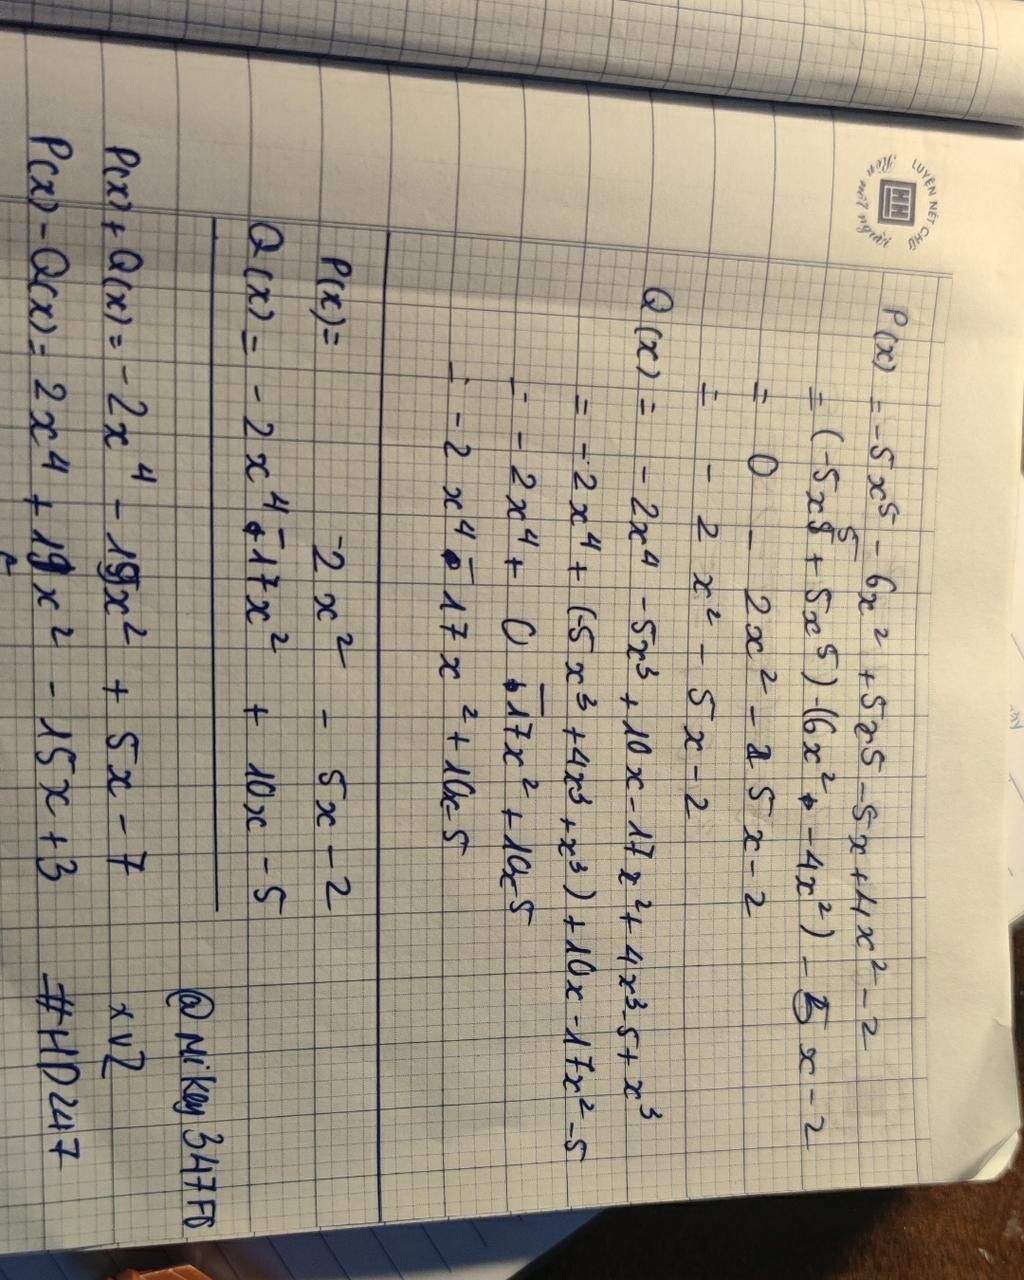 LUYỆN NÉT CHỮ
HH
Rèn nét người
P(x) = -5x⁵ - 6x² + 5x⁵ - 5x + 4x² - 2
= (-5x⁵ + 5x⁵) - (6x² - 4x²) - 5x - 2
= 0 - 2x² - 5x - 2
= - 2x² - 5x - 2
Q(x) = - 2x⁴ - 5x³ + 10x - 17x² + 4x³ - 5 + x³
= - 2x⁴ + (-5x³ + 4x³ + x³) + 10x - 17x² - 5
= - 2x⁴ + 0 - 17x² + 10x - 5
= - 2x⁴ - 17x² + 10x - 5
P(x) = -2x² - 5x - 2
Q(x) = - 2x⁴ - 17x² + 10x - 5
@Mikey347FD
P(x) + Q(x) = - 2x⁴ - 19x² + 5x - 7 xVZ
P(x) - Q(x) = 2x⁴ + 19x² - 15x + 3 #HD247